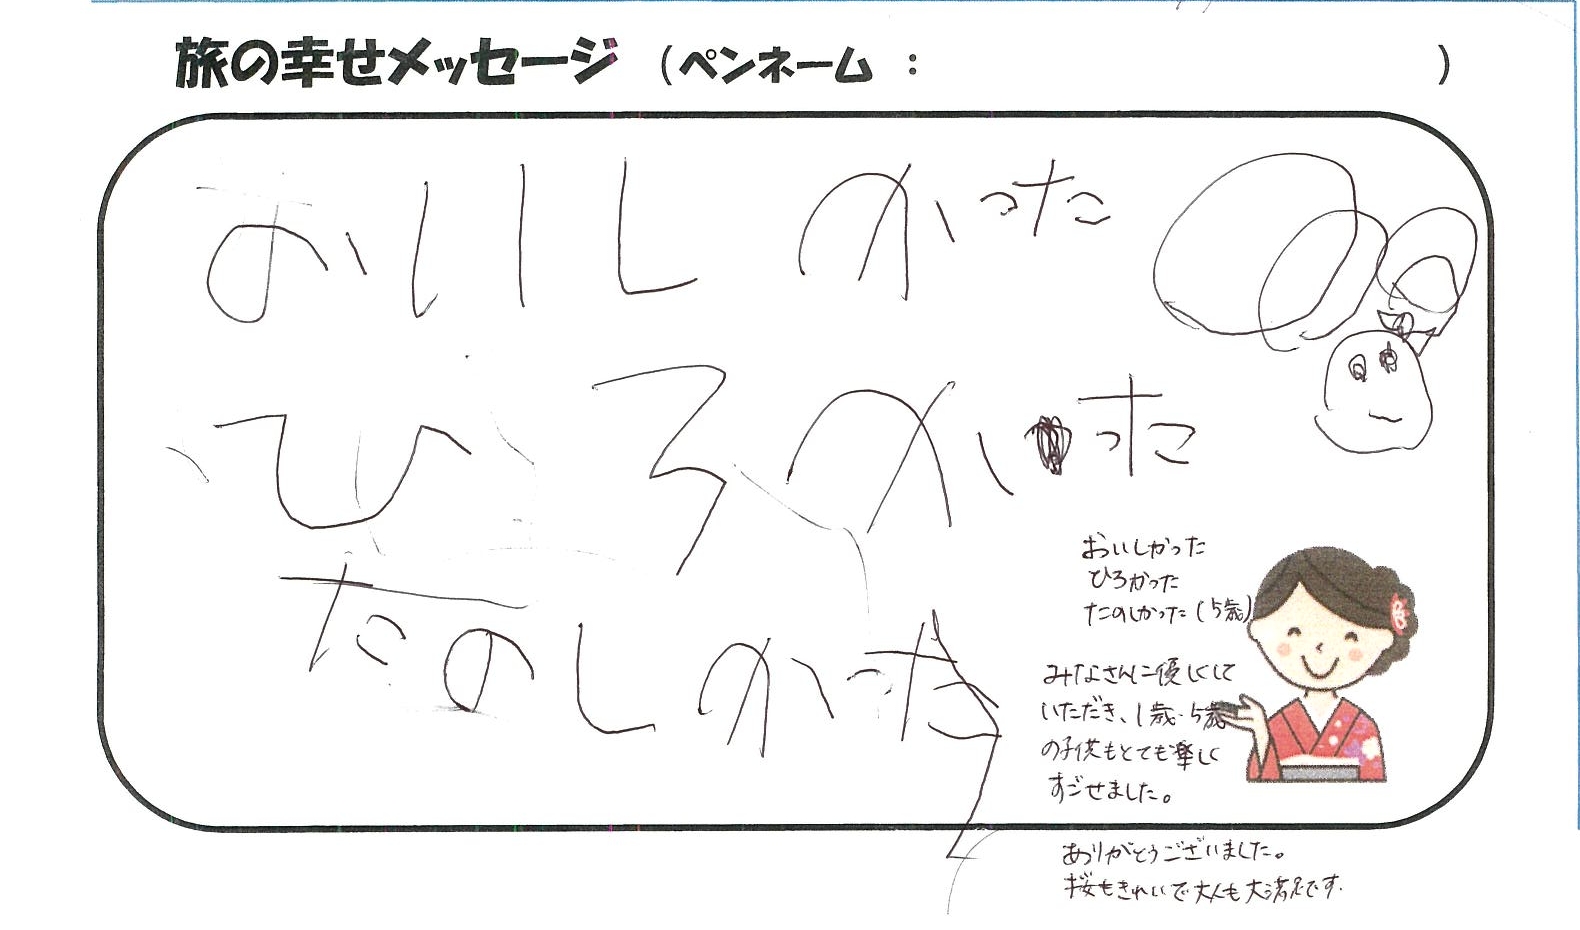 旅の幸せメッセージ （ペンネーム ： ）
おいしかった
ひろかった
たのしかった
おいしかった
ひろかった
たのしかった（5歳）
みなさんに優しくして
いただき、1歳・5歳
の子供もとても楽しく
すごせました。
ありがとうございました。
桜もきれいで大人も大満足です.